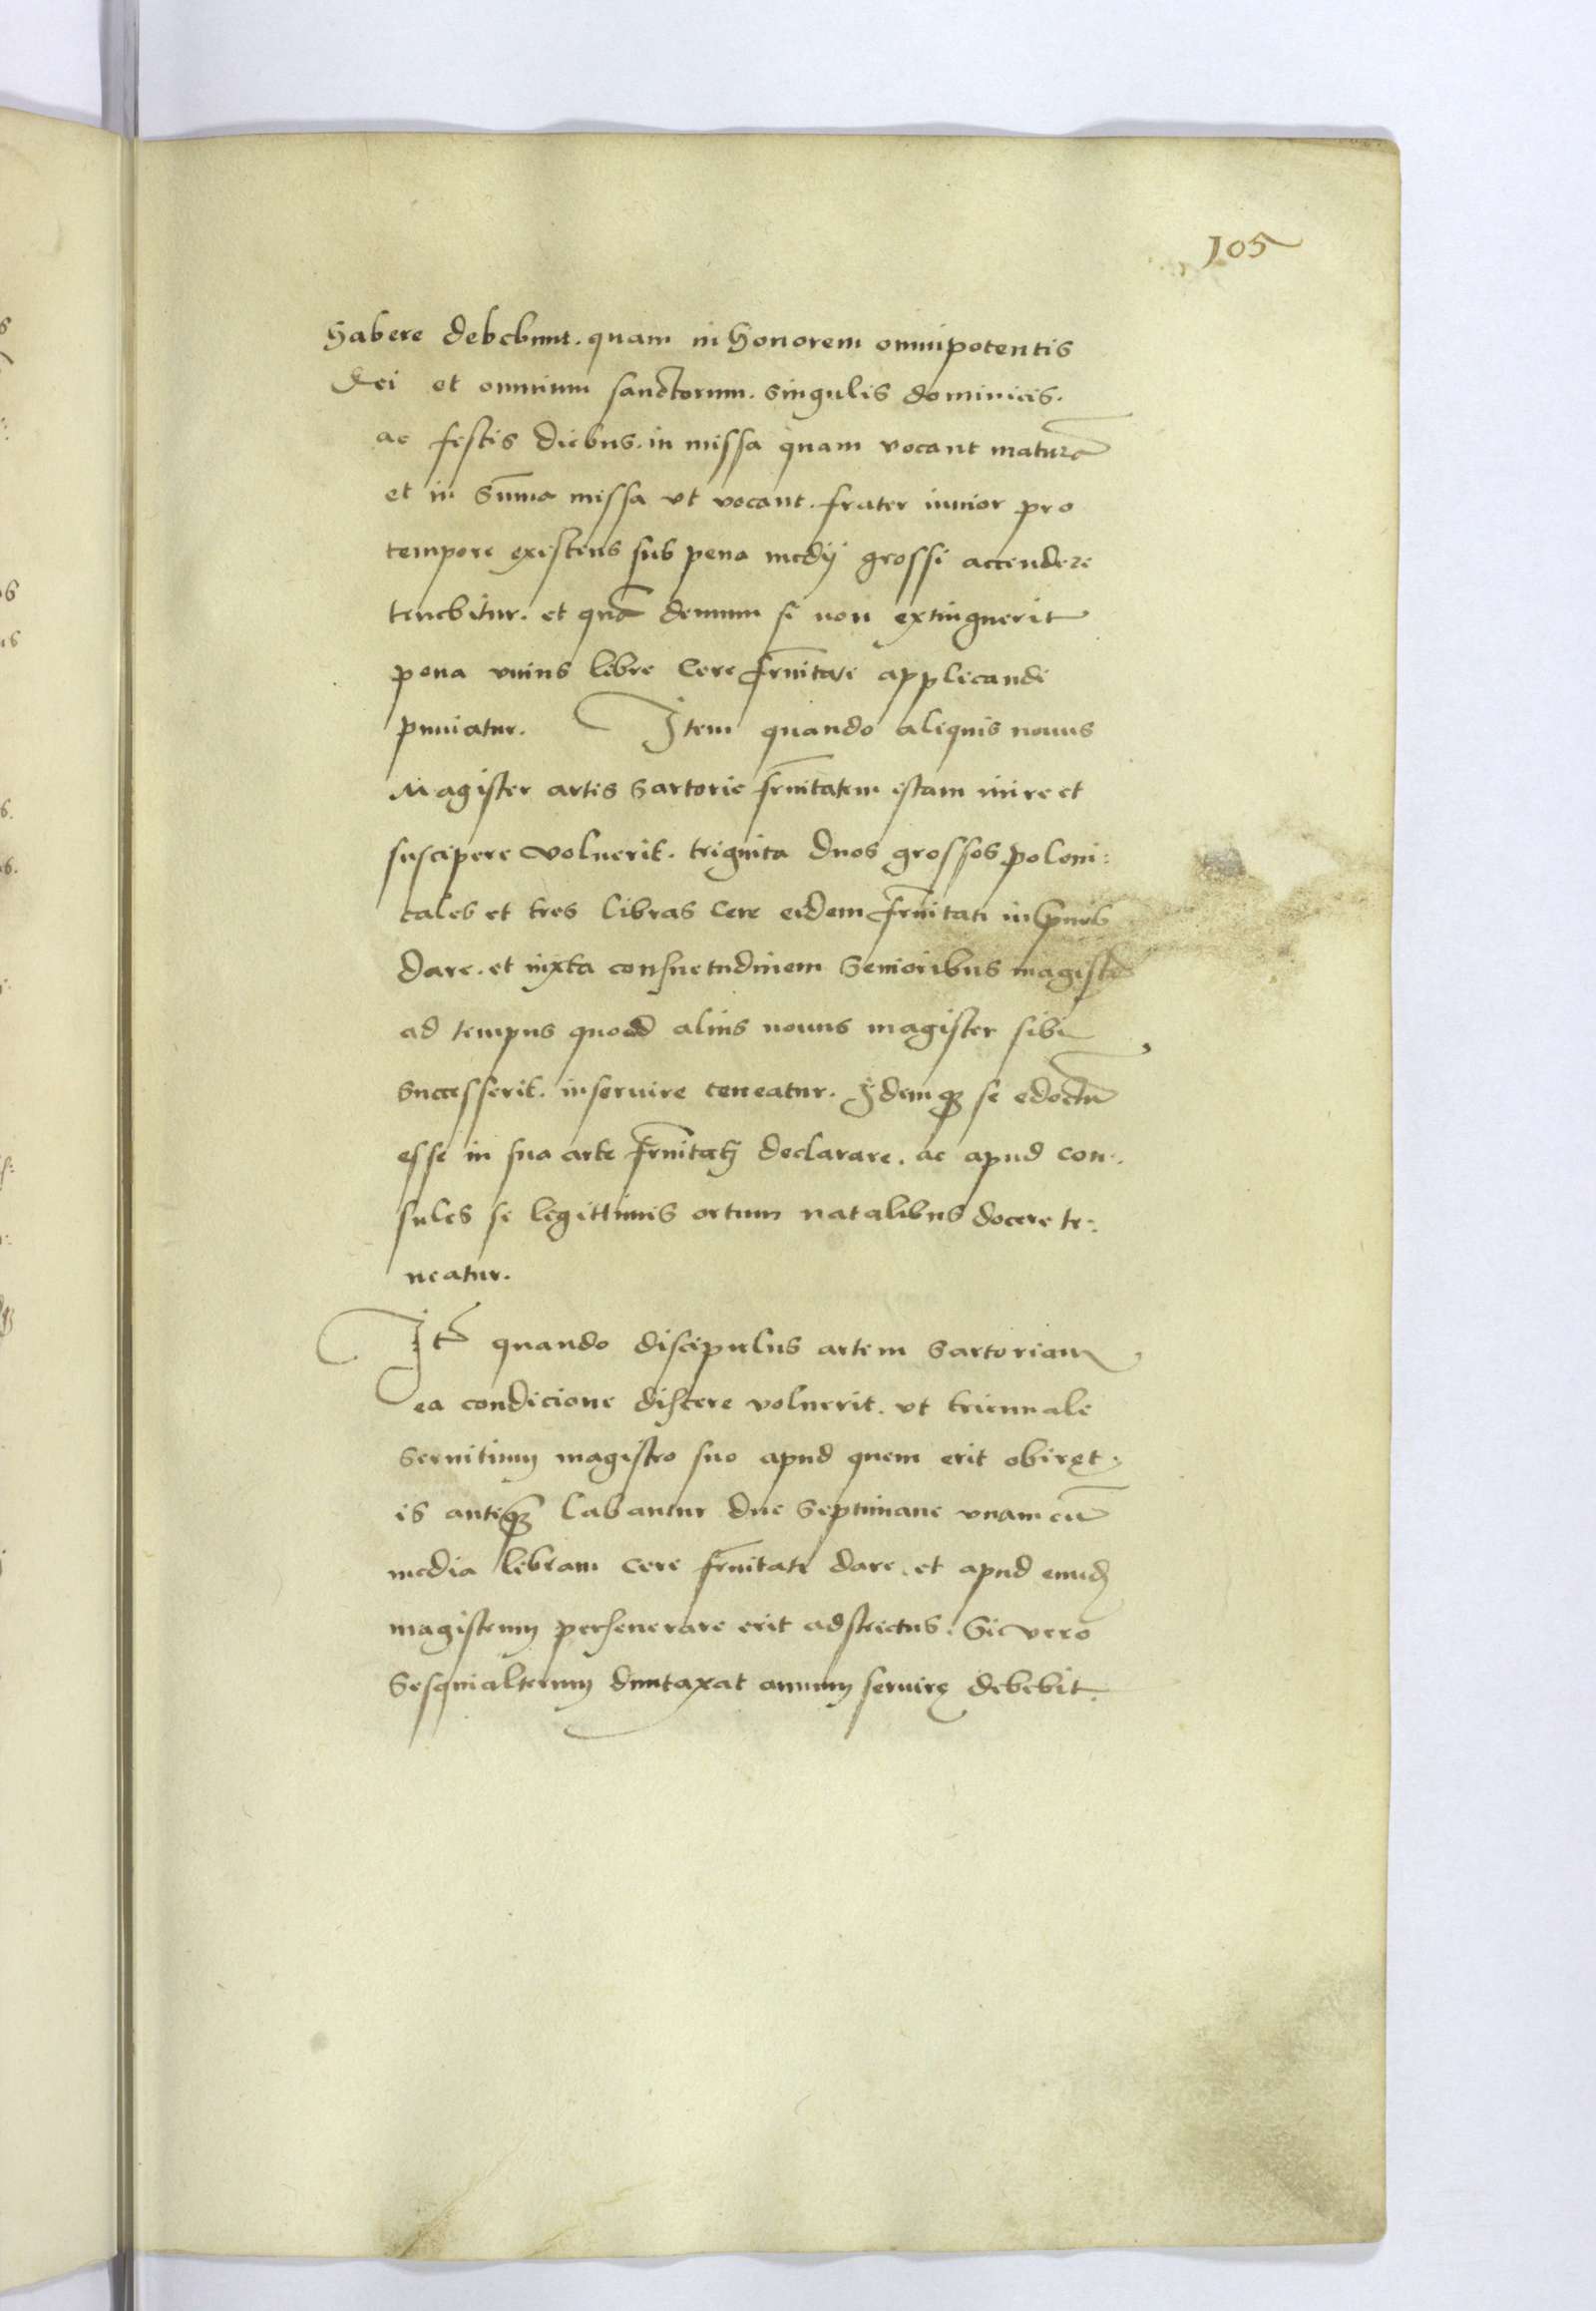 105
habere debebunt. quam in honorem omnipotentis
Dei et omnium sanctorum. singulis dominicis.
ac festis diebus. in missa quam vocant maturā
et in sūma missa vt vocant. frater iunior pro
tempore existens sub pena medij grossi accendere
tenebitur. et quā demum si non extinguerit
pena vnius libre cere frn̄itati applicandi
puniatur. Item quando aliquis nouus
Magister artis sartorie frn̄itatem istam inire et
suscipere voluerit. triginta duos grossos poloni:
cales et tres libras cere eidem frn̄itati
dare. et iuxta consuetudinem senioribus magist̄
ad tempus quoad alius nouus magister sibi
successerit. inseruire teneatur. Idemqꝫ se edoctū
esse in sua arte frn̄itatj declarare. ac apud con:
sules se legittimis ortum natalibus docere te:
neatur.
Itē quando discipulus artem sartoriam
ea condicione discere voluerit. vt triennale
seruitium magistro suo apud quem erit obiret.
is anteqꝫ labantur due septimane vnam cū
media libram cere frn̄itati dare. et apud eundē
magistrum perseuerare erit adstrictus. Si vero
sesquialterum duntaxat annum seruire debebit.